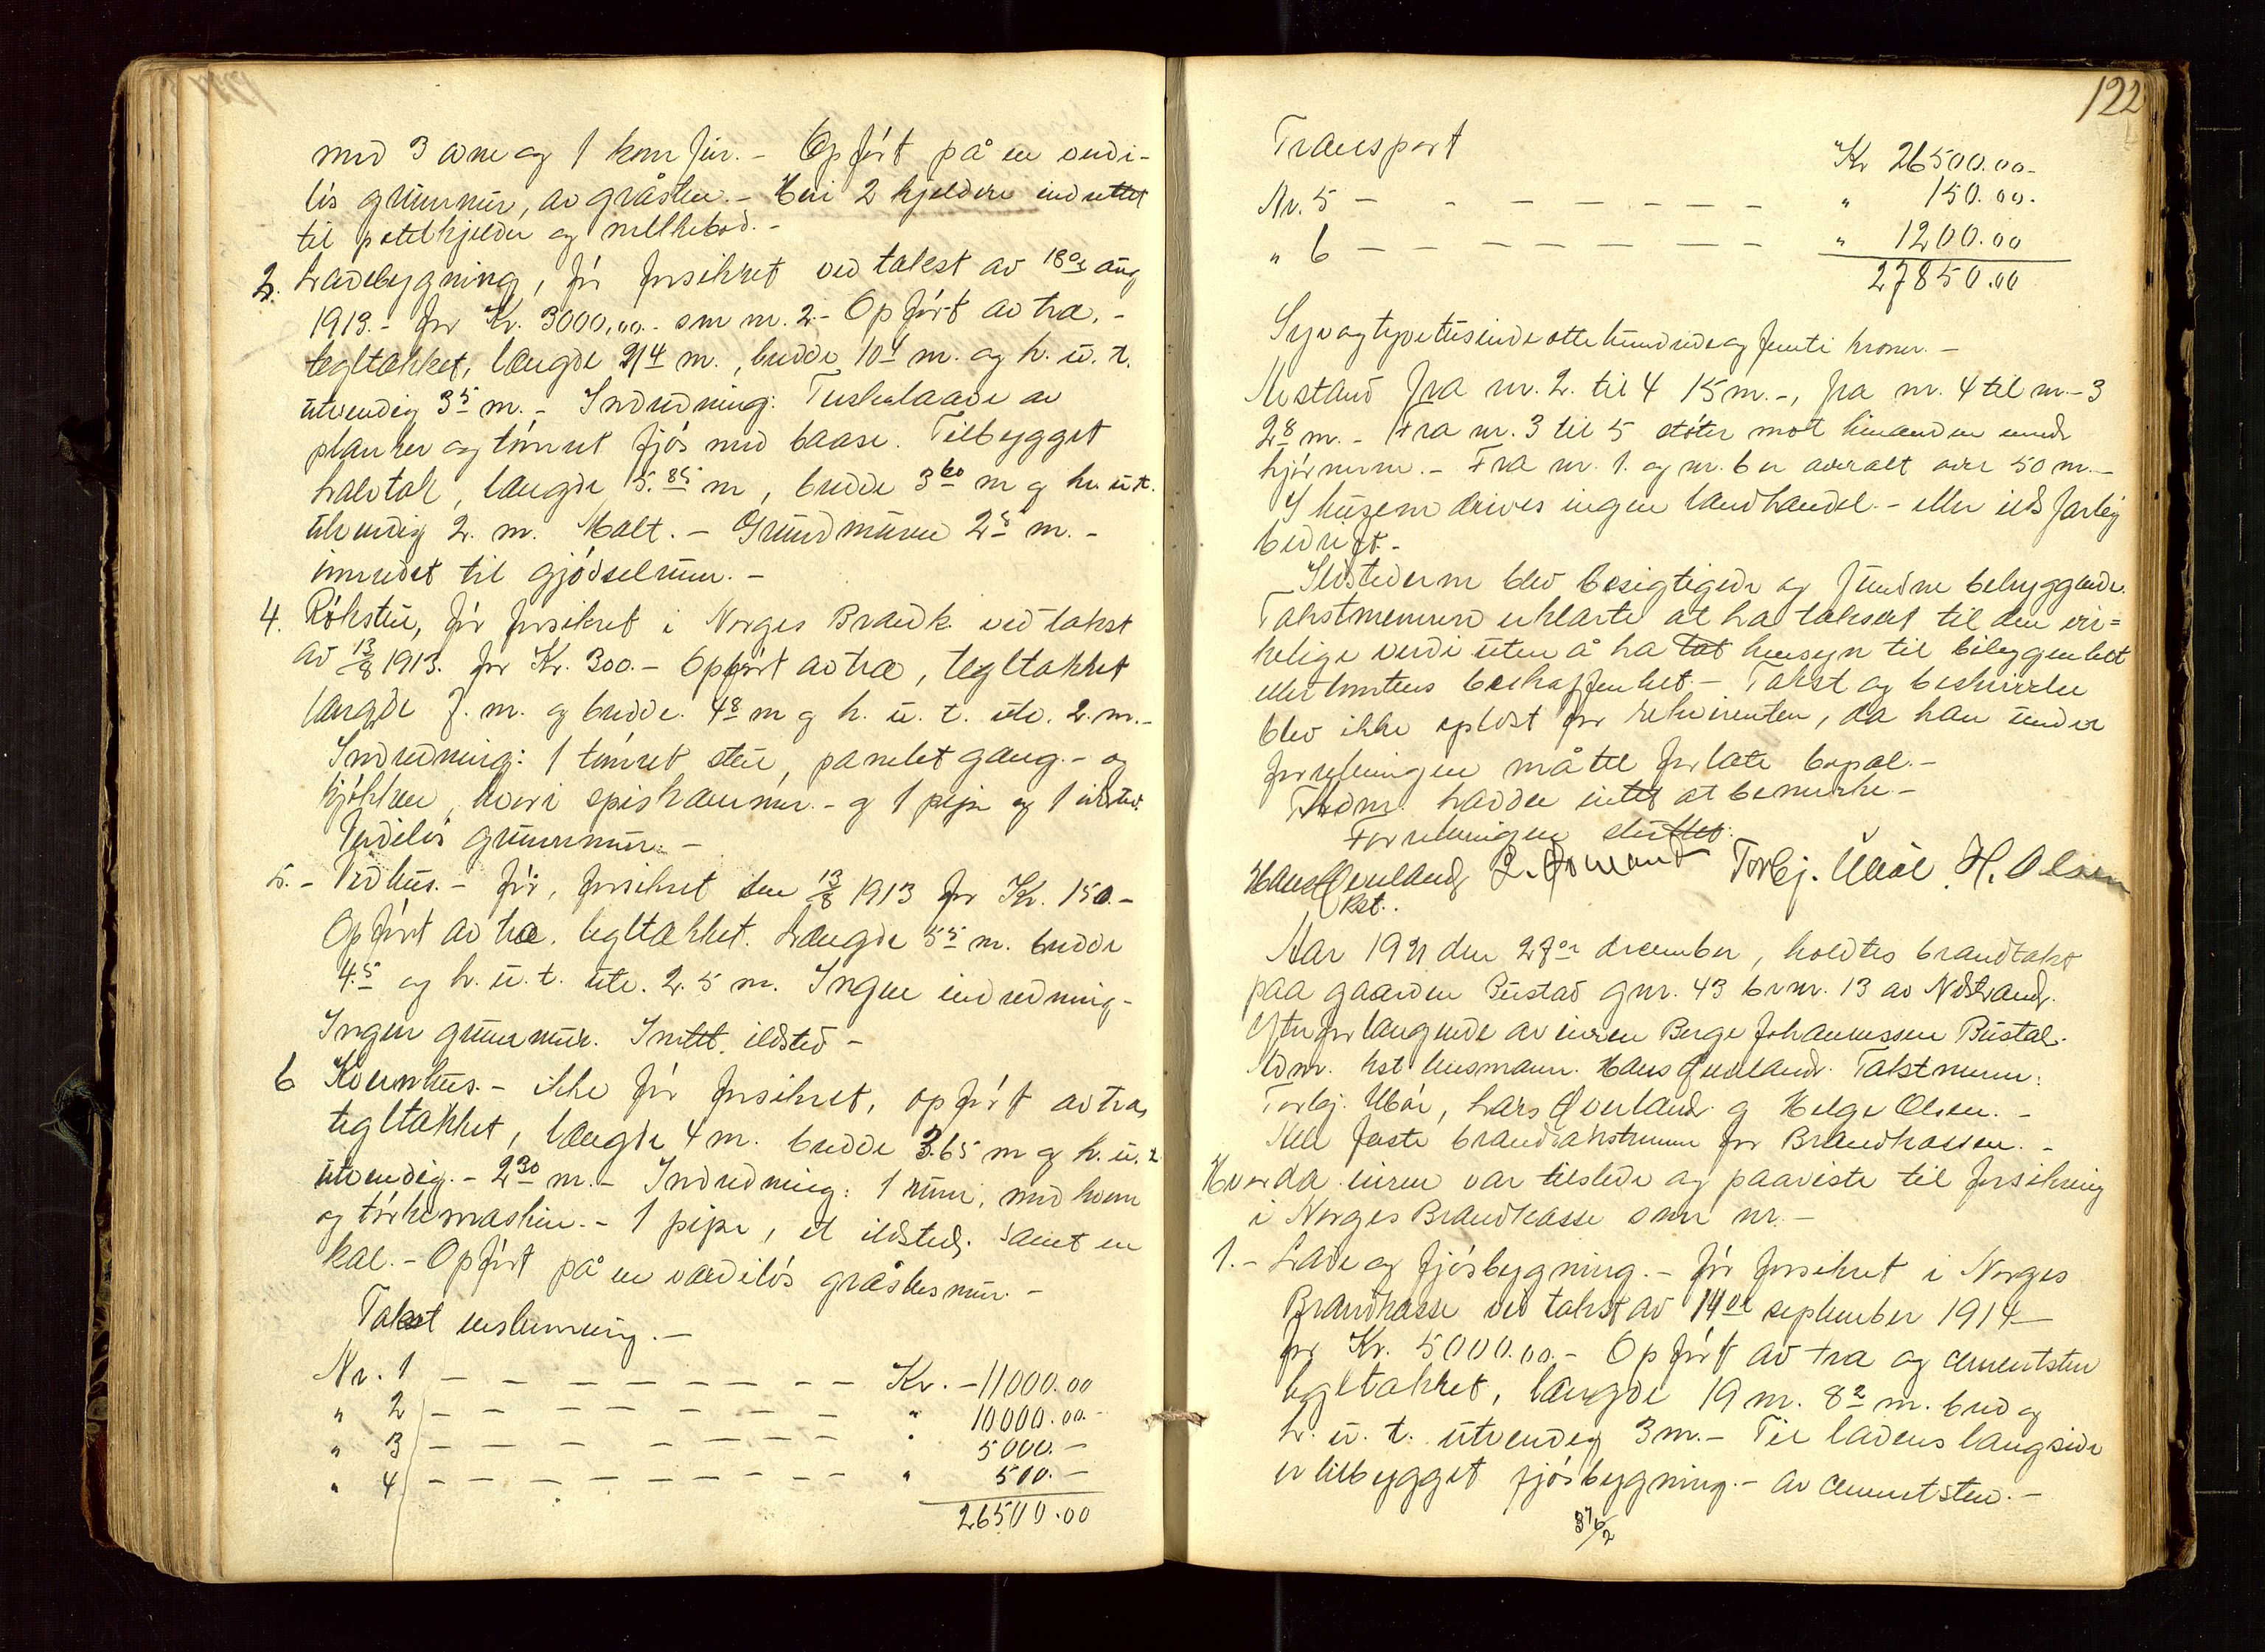 med 3 ovne og 1 komfür. - Opført på en verdi-
løs grunmur, av gråsten. - Heri 2 kjeldere indrettet
til potetkjelder og melkebod. -
3. Ladebygning, før forsikret ved takst av 18de aug
1913. - for Kr. 3000,00.- som nr. 2. - Opført av træ, -
tegltækket, længde 21 4 m., bredde 10 4 m. og h. u. t.
utvendig 3 5 m. - Indredning: Treskelaade av
planker og tømret fjøs med baase. Tilbygget
halvtak, længde 5.85 m, bredde 3 60 m og h. u. t.
utvendig 2. m. Malt. - Grundmuren 2 5 m. -
inredet til gjødselrum. -
4. Røkstue, før forsikret i Norges Brandk. ved takst
av 13/8 1913. for Kr. 300. - Opført av træ, tegltækket
længde 7. m. og bredde. 4 8 m og h. u. t. utv. 2. m. -
Indredning: 1 tømret stue, panelet gang. - og
kjøkken, hvori spiskammer. - og 1 pipe og 1 ildsted.
Verdiløs grunmur. -
5. - Vedhus. - før, forsikret den 13/8 1913 for Kr. 150. -
Opført av træ. tegltækket. Længde 5 5 m. bredde
4.5 og h. u. t. utv. 2.5 m. Ingen indredning -
Ingen grunmur. Intet ildsted -
6 Kvernhus. - ikke før forsikret, opført av træ,
tegltækket, længde 4 m. bredde 3.65 m og h. u. t
utvendig. - 2 30 m. - Indredning: 1 rum, med kvern
og tørkemaskin. - 1 pipe, et ildsted. samt en
kal. - Opført på en værdiløs gråstensmur. -
Takst
Nr. 1 - - - - - - - - - Kr. - 11000.00
" 2 - - - - - - - - " 10000.00. -
" 3 - - - - - - - - " 5000. -
" 4 - - - - - - - - - " 500. -
26500.00
122
Transport Kr 26500.00-
Nr. 5 - - - - - - - - " 150.00.
" 6 - - - - - - - - " 1200.00
27850.00
Syvogtyvetusindeottehundredeogfemti kroner. -
Avstand fra nr. 2. til 4 15 m. -, fra nr. 4 til nr. - 3
2 8 m. - Fra nr. 3 til 5 støter mot hinanden med
hjørnerne. - Fra nr. 1. og nr. 6 er overalt over 50 m. -
I husene drives ingen landhandel. - eller ildsfarlig
bedrift. -
Ildstederne blev besigtigede og fundne betryggende.
Takstmennene erklærte at ha taksert til den vir=
kelige verdi uten å ha tat hensyn til beliggenhet
eller tomtens beskaffenhet. - Takst og beskrivelse
blev ikke oplæst for rekvirenten, da han under
forretningen måtte forlate bopæl. -
Lædm. hadde intet at bemerke -
Forretningen sluttet.
Hans Øverland L. Øverland Torbj. Ubøe H. Olsen
Kst.
Aar 1921 den 27de december, holdtes brandtakst
paa gaarden Bustad gnr. 43 brnr. 13 av Nedstrand.
Efter forlangende av eieren Berge Johannessen Bustad.
Adm. kst. lensmann. Hans Øverland. Takstmenn:
Torbj. Ubøe, Lars Øverland og Helge Olsen. -
Alle faste brandtakstmenn for Brandkassen. -
Hvorda eieren var tilstede og paaviste til forsikring
i Norges Brandkasse som nr. -
1. - Lade og fjøsbygning. - før forsikret i Norges
Brandkasse ved takst av 14de september 1914 -
for Kr. 5000.00. - Opført av træ og cementsten
tegltækket, længde 19 m. 8 2 m. bred og
h. u. t. utvendig 3 m. - Til ladens langside
er tilbygget fjøsbygning. - av cementsten. -